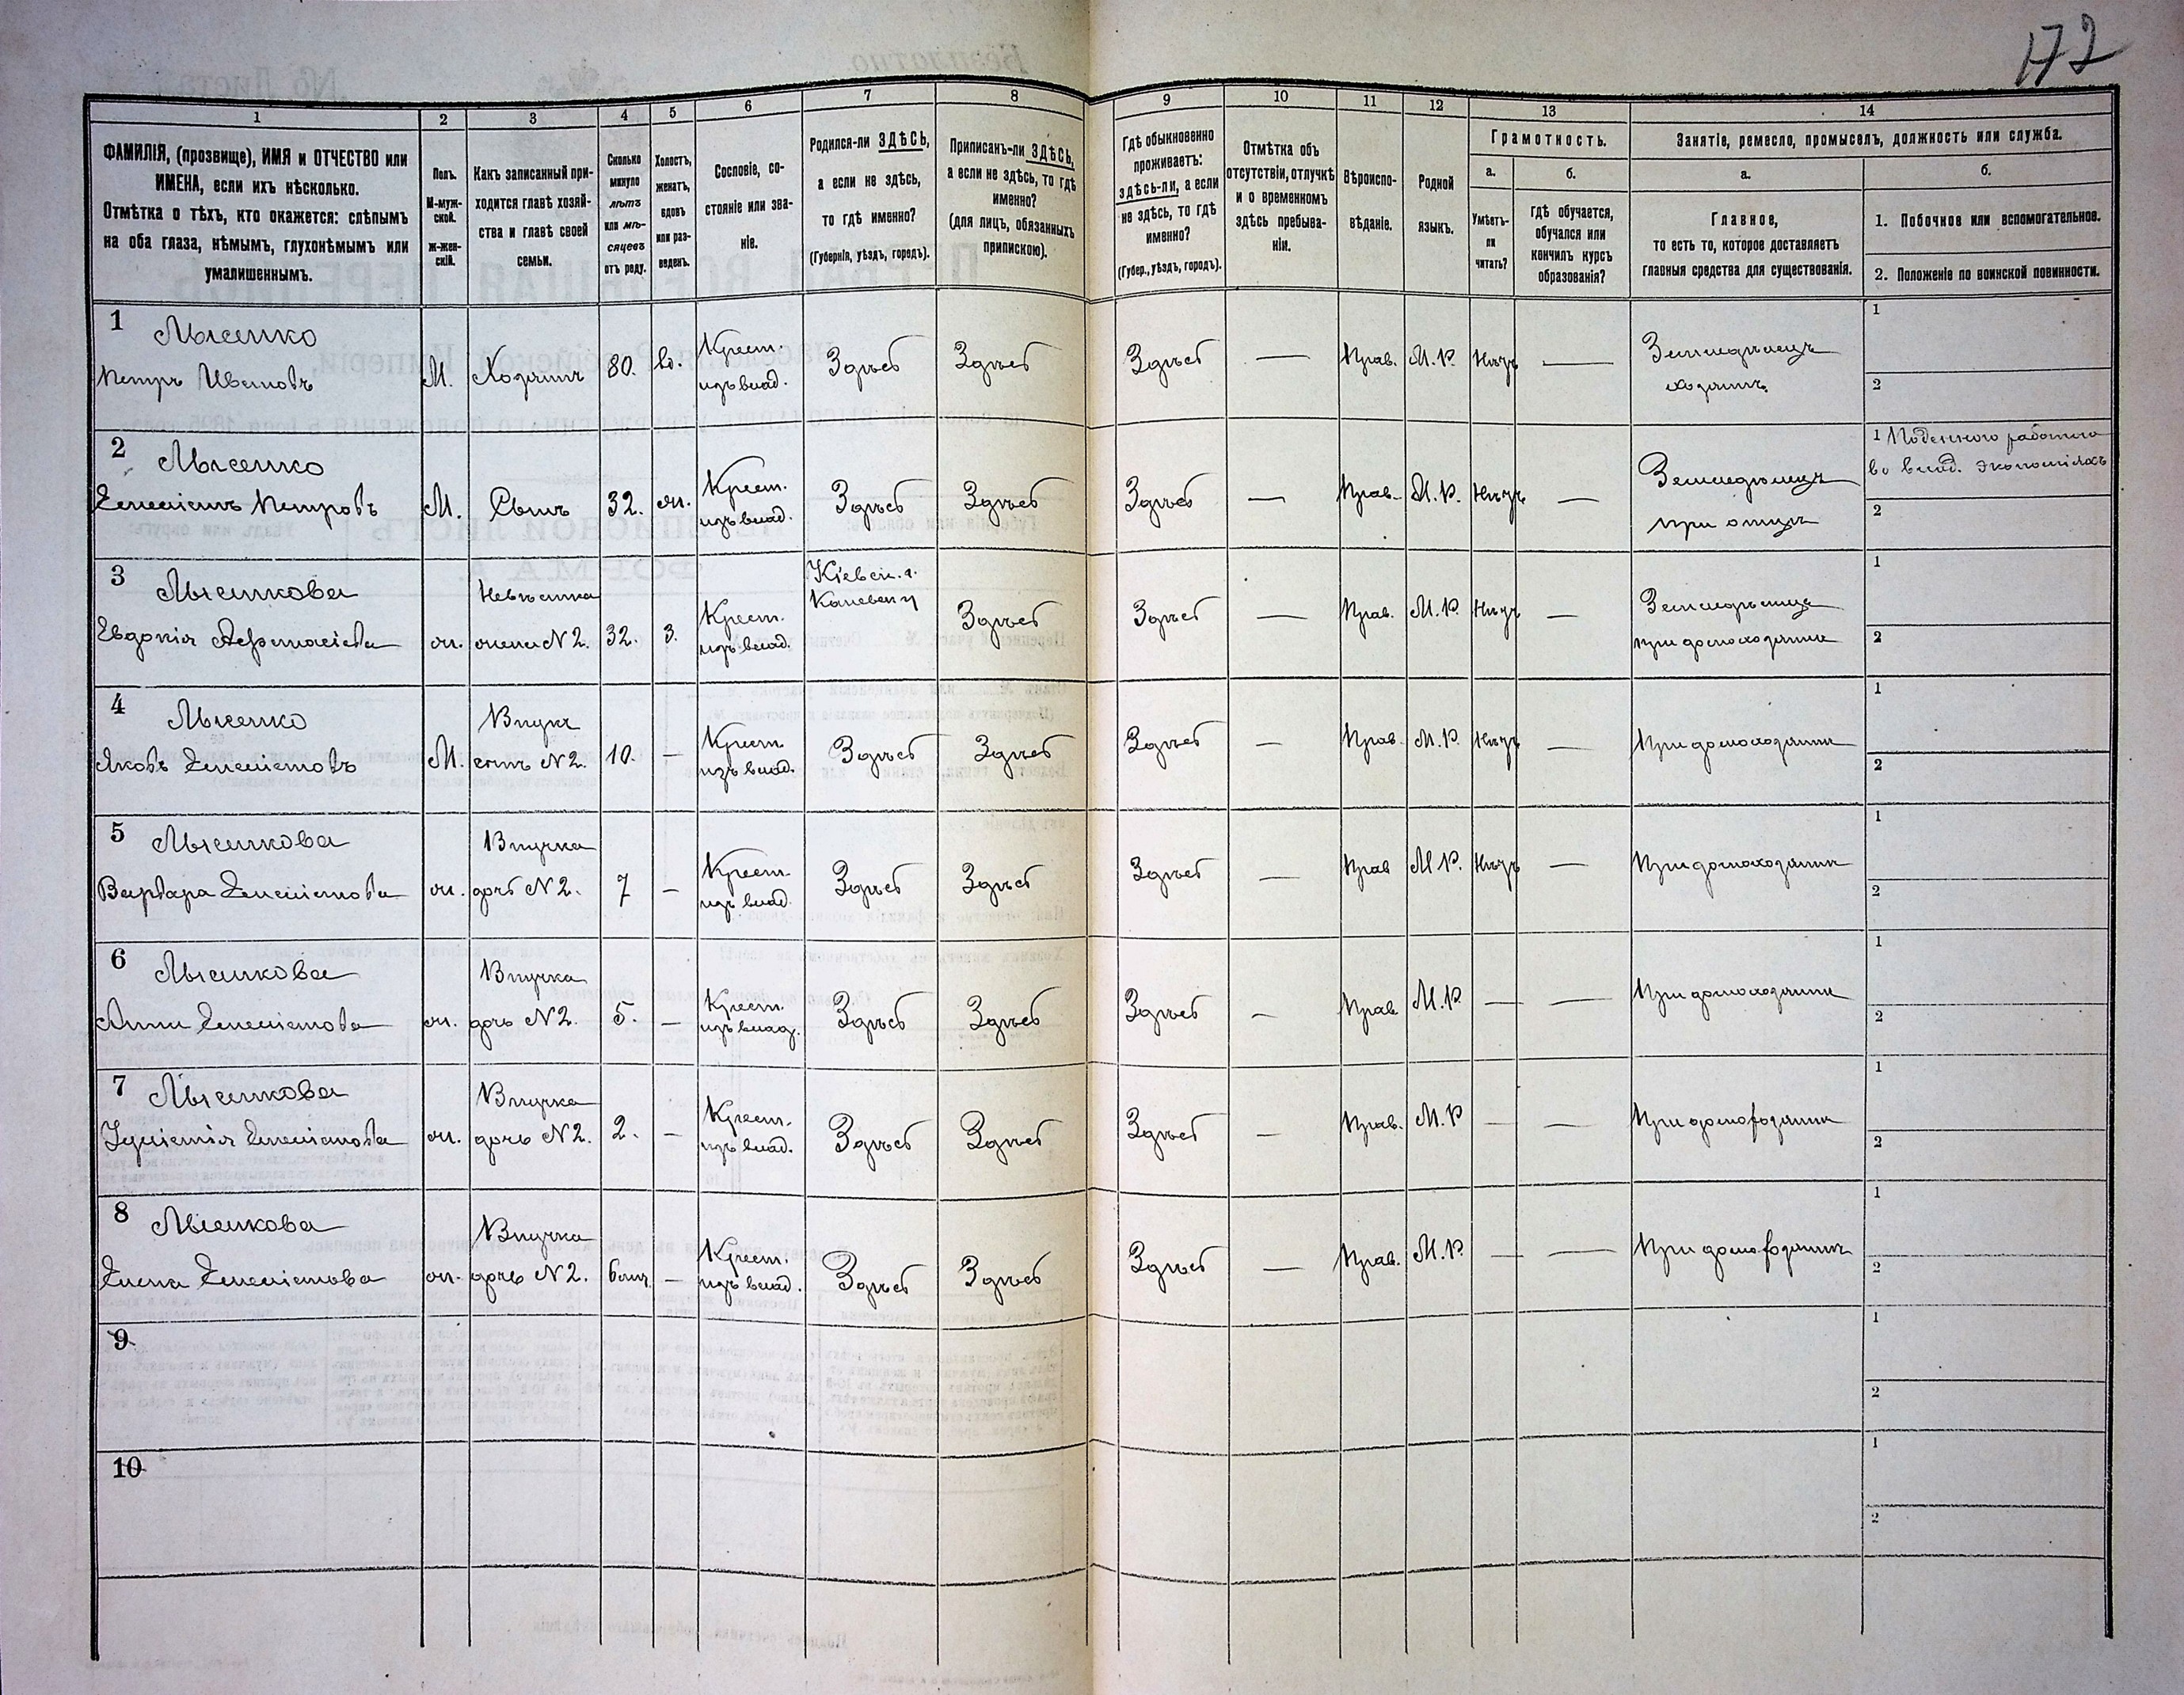 172
1
2
3
4
5
6
7
8
9
10
11
12
13
14
ФАМИЛІЯ, (прозвище), ИМЯ и ОТЧЕСТВО или
ИМЕНА, если ихъ нѣсколько.
Отмѣтка о тѣхъ, кто окажется: слѣпымъ
на оба глаза, нѣмымъ, глухонѣмымъ или
умалишеннымъ.
Полъ.
М-муж-
ской.
Ж-жен-
скій.
Какъ записанный при-
ходится главѣ хозяй-
ства и главѣ своей
семьи.
Сколько
минуло
лѣтъ
или мѣ-
сяцевъ
отъ роду.
Холостъ,
женатъ,
вдовъ
или раз-
веденъ.
Сословіе, со-
стояніе или зва-
ніе.
Родился-ли ЗДѢСЬ,
а если не здѣсь,
то гдѣ именно?
(Губернія, уѣздъ, городъ).
Приписанъ-ли ЗДѢСЬ,
а если не здѣсь, то гдѣ
именно?
(для лицъ, обязанныхъ
припискою).
Гдѣ обыкновенно
проживаетъ:
здѣсь-ли, а если
не здѣсь, то гдѣ
именно?
(Губер., уѣздъ, городъ).
Отмѣтка объ
отсутствіи, отлучкѣ
и о временномъ
здѣсь пребыва-
ніи.
Вѣроиспо-
вѣданіе.
Родной
языкъ.
Грамотность.
а.
Умѣетъ-
ли
читать?
б.
гдѣ обучается,
обучался или
кончилъ курсъ
образованія?
Занятіе, ремесло, промыселъ, должность или служба.
а.
Главное,
то есть то, которое доставляетъ
главныя средства для существованія.
б.
1. Побочное или вспомогательное.
2. Положеніе по воинской повинности.
1 Лысенко
Петръ Ивановъ
М.
Хозяинъ
80.
вд.
Крест.
изъ влад.
Здѣсь
Здѣсь
Здѣсь
—
Прав.
М.Р.
Нѣтъ
—
Земледѣлецъ
хозяинъ
1
2
2 Лысенко
Климентъ Петровъ
М.
Сынъ
32.
ж.
Крест.
изъ влад.
Здѣсь
Здѣсь
Здѣсь
—
Прав.
М.Р.
Нѣтъ
—
Земледѣлецъ
при отцѣ
1 Поденного работою
во влад. экономіяхъ
2
3 Лысенкова
Евдокія Афанасіева
ж.
Невѣстка
жена N 2.
32.
З.
Крест.
изъ влад.
Кіевск. г.
Каневск. у
Здѣсь
Здѣсь
—
Прав.
М.Р.
Нѣтъ
—
Земледѣлица
при домохозяинѣ
1
2
4 Лысенко
Яковъ Климентовъ
М.
Внукъ
сынъ N 2.
10.
—
Крест.
изъ влад.
Здѣсь
Здѣсь
Здѣсь
—
Прав.
М.Р.
Нѣтъ
—
При домохозяинѣ
1
2
5 Лысенкова
Варвара Климентова
ж.
Внучка
дочь N 2.
7
—
Крест.
изъ влад.
Здѣсь
Здѣсь
Здѣсь
—
Прав
М.Р.
Нѣтъ
—
При домохозяинѣ
1
2
6 Лысенкова
Анна Климентова
ж.
Внучка
дочь N 2.
5.
—
Крест.
изъ влад.
Здѣсь
Здѣсь
Здѣсь
—
Прав
М.Р.
—
—
При домохозяинѣ
1
2
7 Лысенкова
Климентова
ж.
Внучка
дочь N 2.
2.
—
Крест.
изъ влад.
Здѣсь
Здѣсь
Здѣсь
—
Прав.
М.Р
—
—
При домохозяинѣ
1
2
8 Лысенкова
Климентова
ж.
Внучка
дочь N 2.
6 м.
—
Крест.
изъ влад.
Здѣсь
Здѣсь
Здѣсь
—
Прав.
М.Р.
—
—
При домохозяинѣ
1
2
9
1
2
10
1
2